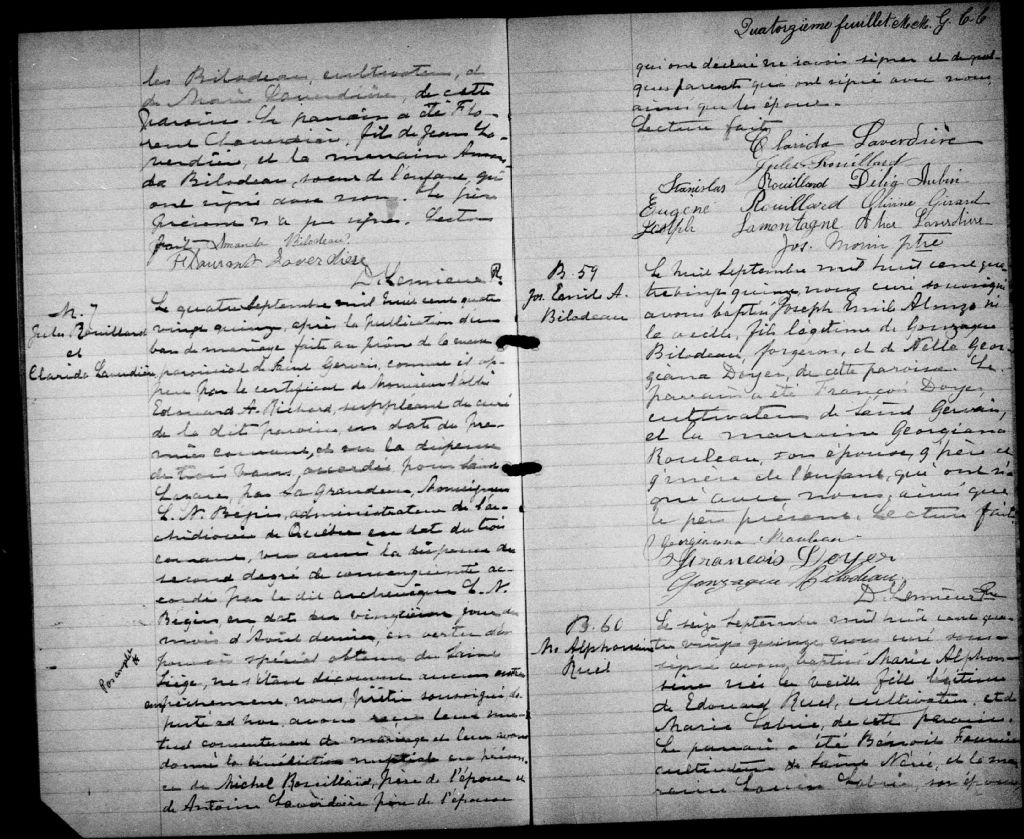 les Bilodeau, cultivateur, et
de Marie Laverdière, de cette
paroisse. Le parrain a été Flo-
rent Laverdière, fils de Jean La-
verdière, et la marraine Aman-
da Bilodeau, soeur de l'enfant, qui
ont signé avec nous. Le père
présent n'a pu signer. Lecture
faite Amanda Bilodeau.
Flaurant Laverdiere
D. Lemieux Ptre
M. 7
Jules Rouillard
et
Clarida Laverdière
Le quatre Septembre mil huit cent quatre
vingt quinze, après la publication d'un
ban de mariage faite au prône de la messe
paroissiale de Saint Gervais, comme il ap-
pert par le certificat de Monsieur l'abbé
Edouard A. Richard, suppléant du curé
de la dite paroisse, en date du pre-
mier courant, et vu la dispense
de trois bans accordée pour Saint
Lazare, par Sa Grandeur, Monseigneur
L. N. Bégin, administrateur de l'ar-
chidiocèse de Québec en date du trois
courant, vu aussi la dispense du
second degré de consanguinité ac-
cordée par le dit archevêque L. N.
Bégin, en date du vingtième jour du
mois d'Avril dernier, en vertu d'un
pouvoir spécial obtenu du Saint
Siège, ne s'étant découvert aucun autre
empêchement, nous, prêtre soussigné
avons reçu leur mu-
tuel consentement de mariage et leur avons
donné la bénédiction nuptiale en présen-
ce de Michel Rouillard, père de l'époux et
de Antoine Laverdière père de l'épouse
Quatorzième feuillet. M. M. G. C. C
qui ont déclaré ne savoir signer et de quel-
ques parents qui ont signé avec nous
ainsi que les époux.
Lecture faite
Clarida Laverdière
Jules Rouillard
Stanislas Rouillard Délia Aubin
Eugène Rouillard Etienne Girard
Joseph Lamontagne Laverdière
Jos. Morin ptre
B 59
Jos. Emile A.
Bilodeau
Le huit Septembre mil huit cent qua-
tre vingt quinze, nous curé soussigné
avons baptisé Joseph Emile Alonzo né
la veille, fils légitime de Gonzague
Bilodeau, forgeron, et de Nella Geor-
giana Doyer, de cette paroisse. Le
parrain a été François Doyer,
cultivateur de Saint Gervais,
et la marraine Georgiana
Rouleau, son épouse, g'père et
g'mère de l'enfant, qui ont si-
gné avec nous, ainsi que
le père présent. Lecture faite
Georgianna Rouleau
François Doyer
Gonzague Bilodeau
D. Lemieux Ptre
B. 60
M. Alphonsine
Ruel
Le seize Septembre mil huit cent qua-
tre vingt quinze nous curé sous-
signé avons baptisé Marie Alphon-
sine née la veille fille légitime
de Edouard Ruel, cultivateur, et de
Marie Labrie, de cette paroisse.
Le parrain a été Bénoit Fournier
cultivateur de Sainte Nérée, et la mar-
raine Labrie, son épouse